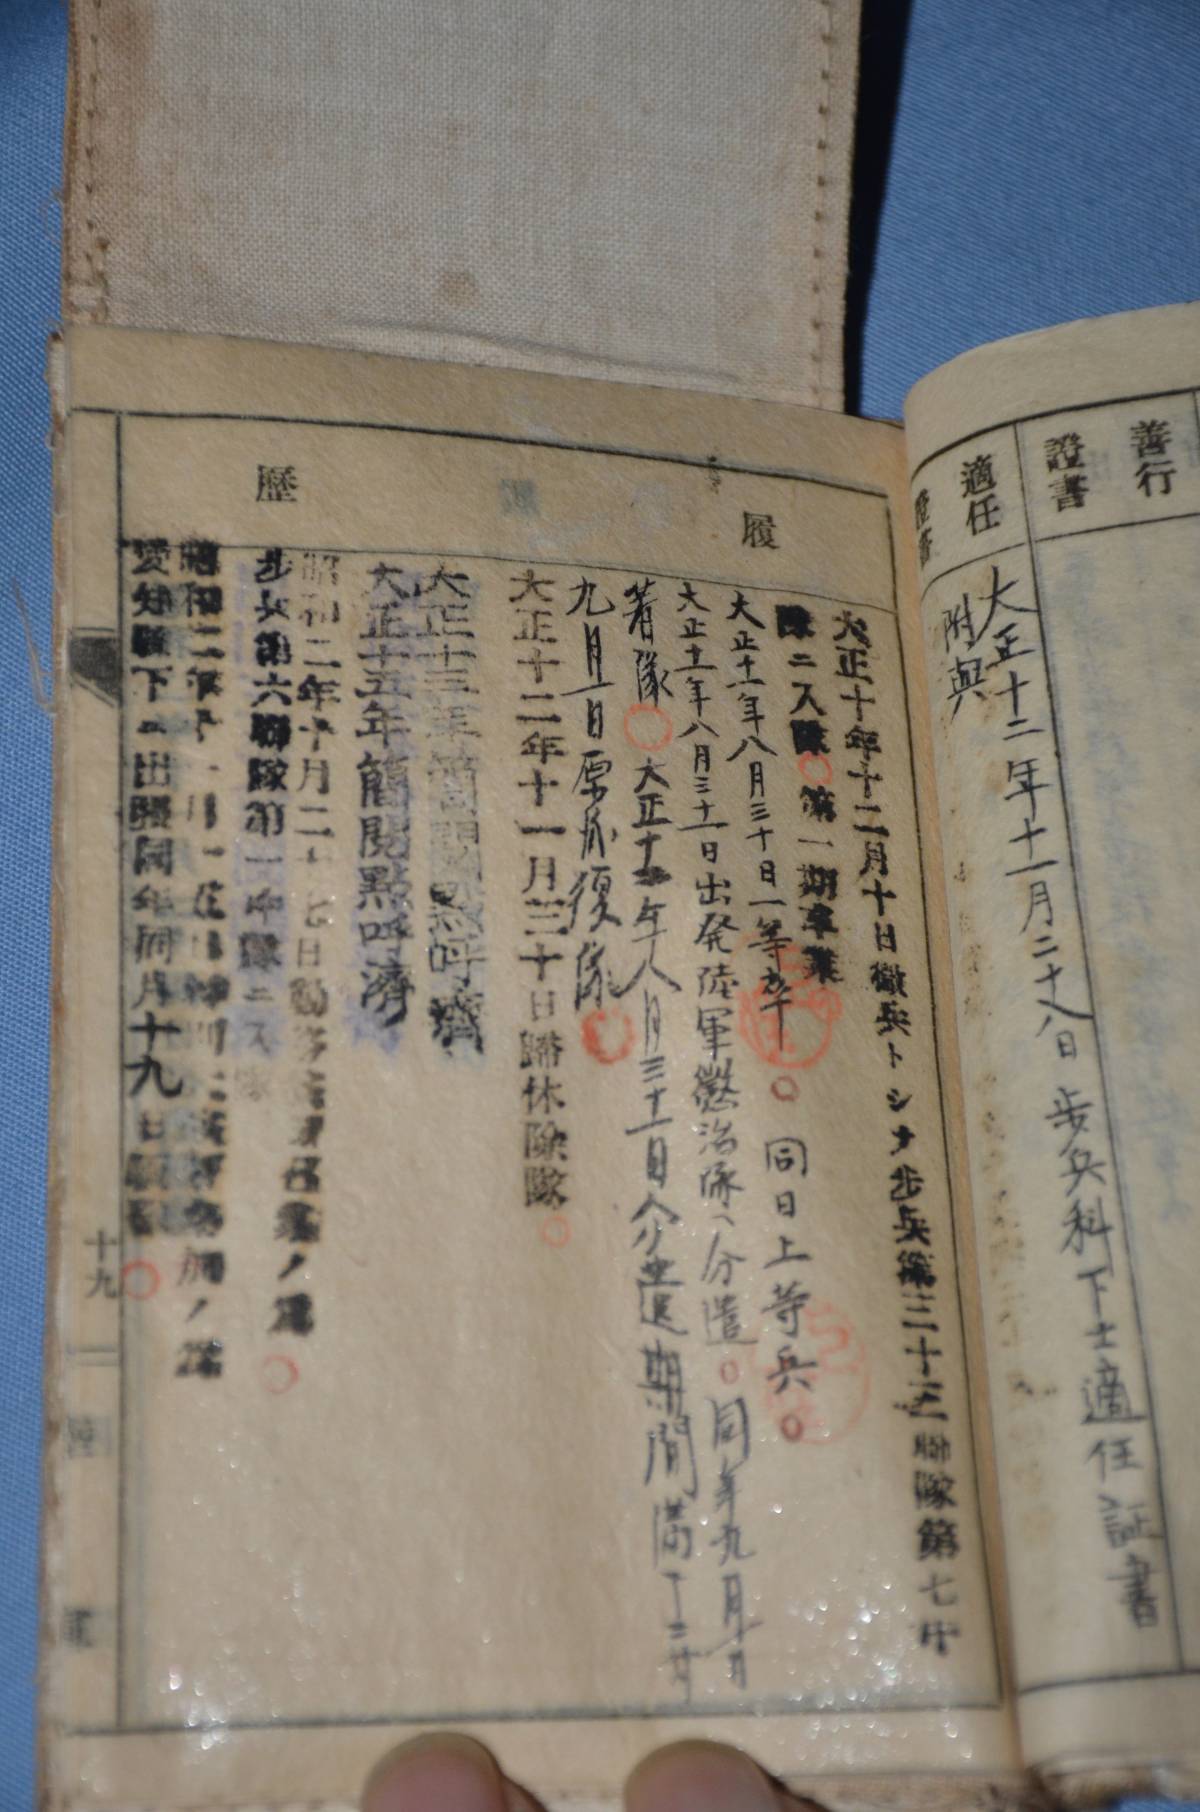 善行
證書
適任
證書
大正十二年十一月二十八日歩兵科下士適任証書
附與
履歴
大正十年十二月十日徴兵トシテ歩兵第三十三聯隊第七中
隊ニ入隊○第一期卒業
大正十一年八月三十日一等卒○同日上等兵○
大正十一年八月三十一日出発陸軍懲治隊ヘ分遣○同年九月一日
着隊○大正十二年八月三十一日分遣期間満了ニ付
九月一日原隊復隊○
大正十二年十一月三十日歸休除隊○
大正十三年簡閲點呼濟
大正十五年簡閲點呼濟
昭和二年十月二十七日勤務演習召集ノ為○
歩兵第六聯隊第一中隊ニ入隊
昭和二年十一月 ノ為
愛知縣下ニ出張同年同月十九日歸
十九